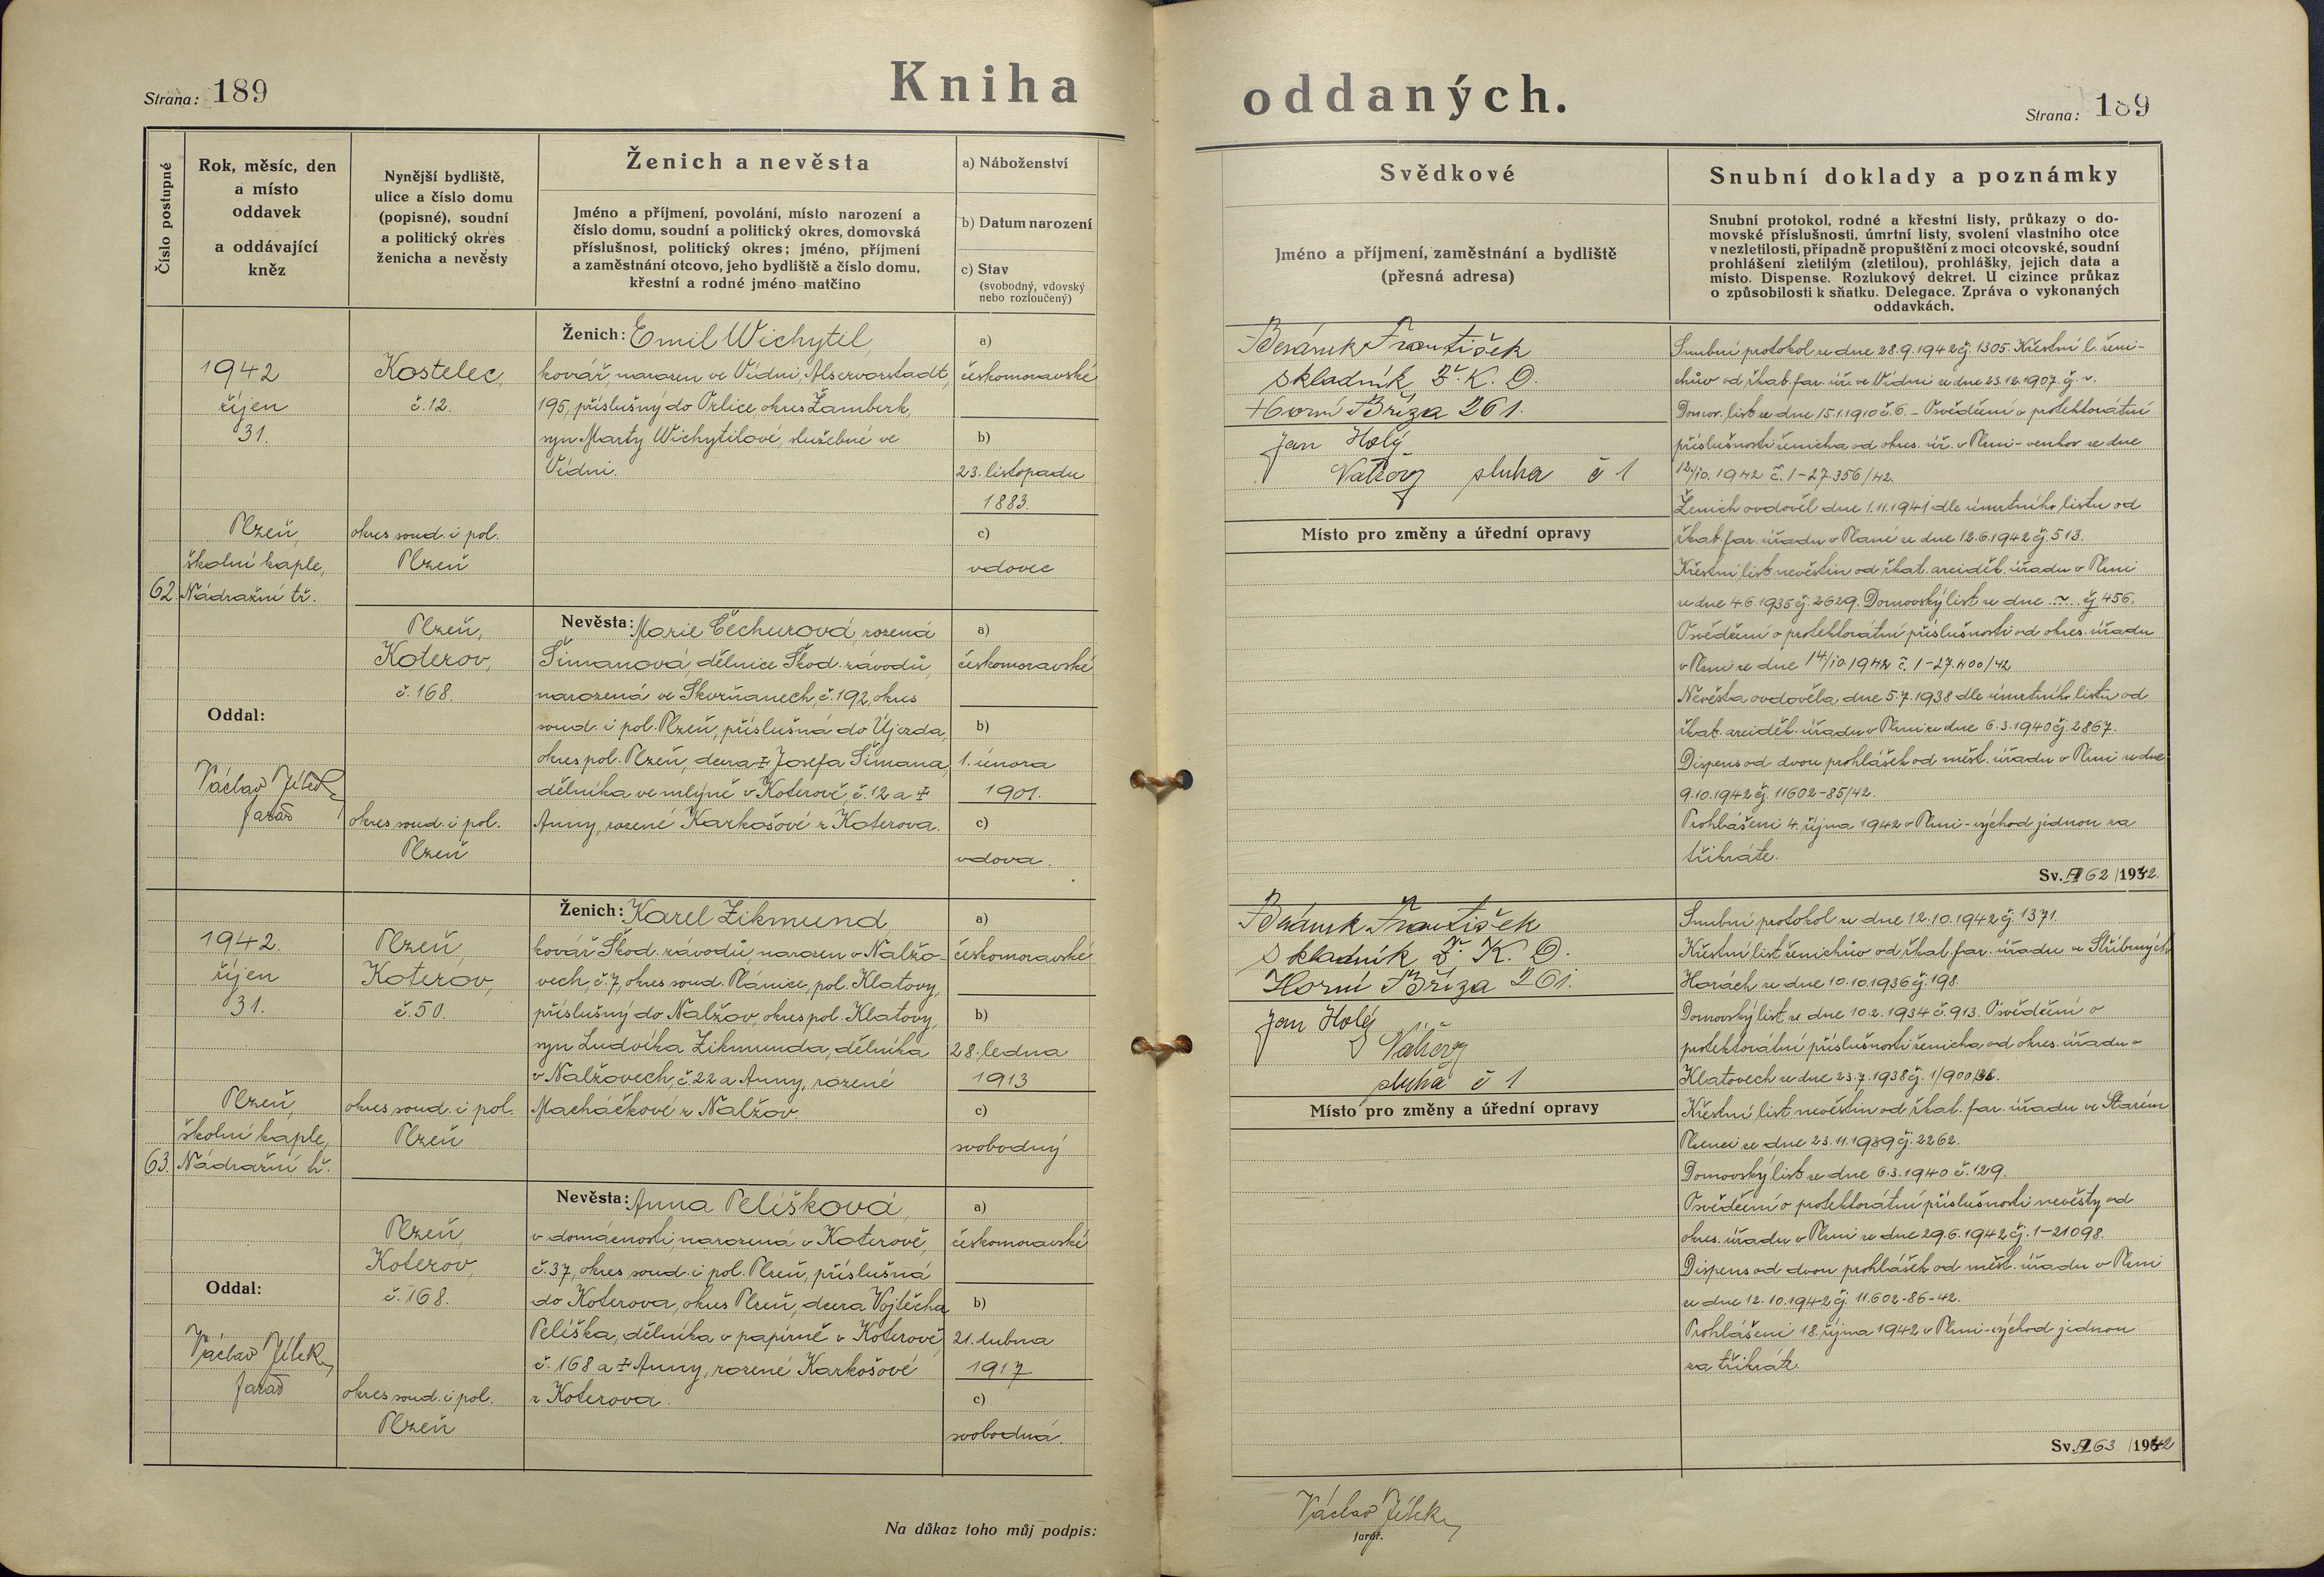 Strana: 189
Kniha oddaných.
Strana: 189
Číslo postupné
Rok, měsíc, den
a místo
oddavek
a oddávající
kněz
Nynější bydliště,
ulice a číslo domu
(popisné), soudní
a politický okres
ženicha a nevěsty
Ženich a nevěsta
Jméno a příjmení, povolání, místo narození a
číslo domu, soudní a politický okres, domovská
příslušnost, politický okres; jméno, příjmení
a zaměstnání otcovo, jeho bydliště a číslo domu,
křestní a rodné jméno matčino
a) Náboženství
b) Datum narození
c) Stav
(svobodný, vdovský
nebo rozloučený)
Svědkové
Jméno a příjmení, zaměstnání a bydliště
(přesná adresa)
Snubní doklady a poznámky
Snubní protokol, rodné a křestní listy, průkazy o do-
movské příslušnosti, úmrtní listy, svolení vlastního otce
v nezletilosti, případně propuštění z moci otcovské, soudní
prohlášení zletilým (zletilou), prohlášky, jejich data a
místo. Dispense. Rozlukový dekret. U cizince průkaz
o způsobilosti k sňatku. Delegace. Zpráva o vykonaných
oddavkách.
62.
1942
říjen
31.
Plzeň,
školní kaple,
Nádražní tř.
Oddal:
Václav Jílek
farář
Kostelec,
č. 12.
okres soud. i pol.
Plzeň
Plzeň,
Koterov,
č. 168.
okres soud. i pol.
Plzeň
Ženich: Emil Wichytil,
kovář, narozen ve Vídni, Alservorstadt,
195, příslušný do Orlice, okres Žamberk,
syn Marty Wichytilové, služebné ve
Vídni.
Nevěsta: Marie Čechurová, rozená
Šimanová, dělnice Škod. závodů,
narozená ve Skvrňanech, č. 192, okres
soud. i pol. Plzeň, příslušná do Újezda,
okres pol. Plzeň, dcera † Josefa Šimana,
dělníka ve mlýně v Koterově, č. 12 a †
Anny, rozené Karkošové z Koterova.
a)
českomoravské
b)
23. listopadu
1883.
c)
vdovec
a)
českomoravské
b)
1. února
1901.
c)
vdova.
Beránek František
skladník Z. K. D.
Horní Bříza 261.
Jan Holý
sluha č 1
Místo pro změny a úřední opravy
Snubní protokol ze dne 28.9.1942 čj. 1305. Křestní l. ženi-
chův od řkat. far. úř. ve Vídni ze dne 23.12.1907. č. -.
Domov. list ze dne 15.1.1910 č. 6. - Osvědčení o protektorátní
příslušnosti ženicha od okres. úř. v Plzni-venkov ze dne
12/10. 1942 č. 1-27.356/42.
Ženich ovdověl dne 1.11.1941 dle úmrtního listu od
řkat. far. úřadu v Plané ze dne 12.6.1942 čj. 513.
Křestní list nevěstin od řkat. arciděk. úřadu v Plzni
ze dne 4.6.1935 čj. 2629. Domovský list ze dne ... čj 456.
Osvědčení o protektorátní příslušnosti od okres. úřadu
v Plzni ze dne 14/10. 1942 č. 1-27.400/42.
Nevěsta ovdověla dne 5.7.1938 dle úmrtního listu od
řkat. arciděk. úřadu v Plzni ze dne 6.3.1940 čj. 2867.
Dispens od dvou prohlášek od měst. úřadu v Plzni ze dne
9.10.1942 čj. 11602-85/42.
Prohlášeni 4. října 1942 v Plzni-východ jednou za
třikráte.
Sv. 62/1942.
63.
1942.
říjen
31.
Plzeň,
školní kaple,
Nádražní tř.
Oddal:
Václav Jílek
farář
Plzeň,
Koterov,
č. 50.
okres soud. i pol.
Plzeň
Plzeň,
Koterov,
č. 168.
okres soud. i pol.
Plzeň
Ženich: Karel Zikmund,
kovář Škod. závodů, narozen v Nalžo-
vech, č. 7, okres soud. Plánice, pol. Klatovy,
příslušný do Nalžov, okres pol. Klatovy,
syn Ludvíka Zikmunda, dělníka
v Nalžovech, č. 22 a Anny, rozené
Macháčkové z Nalžov.
Nevěsta: Anna Pelíšková,
v domácnosti, narozená v Koterově,
č. 37, okres soud. i pol. Plzeň, příslušná
do Koterova, okres Plzeň, dcera Vojtěcha
Pelíška, dělníka v papírně v Koterově,
č. 168 a † Anny, rozené Karkošové
z Koterova.
a)
českomoravské
b)
28. ledna
1913
c)
svobodný
a)
českomoravské
b)
21. dubna
1917
c)
svobodná.
Beránek František
skladník Z. K. D.
Horní Bříza 261.
Jan Holý
sluha č 1
Místo pro změny a úřední opravy
Snubní protokol ze dne 12.10.1942 čj. 1371.
Křestní list ženichův od řkat. far. úřadu ve Stříbrných
Horách ze dne 10.10.1936 čj. 198.
Domovský list ze dne 10.2.1934 č. 913. Osvědčení o
protektorátní příslušnosti ženicha od okres. úřadu v
Klatovech ze dne 23.7.1938 čj. 1/900/38.
Křestní list nevěstin od řkat. far. úřadu ve Starém
Plzenci ze dne 23.11.1939 čj. 2262.
Domovský list ze dne 6.3.1940 č. 129.
Osvědčení o protektorátní příslušnosti nevěsty od
okres. úřadu v Plzni ze dne 29.6.1942 čj. 1-21098.
Dispens od dvou prohlášek od měst. úřadu v Plzni
ze dne 12.10.1942 čj. 11.602-86-42.
Prohlášeni 18. října 1942 v Plzni-východ jednou
za třikráte.
Sv. 63/1942
Na důkaz toho můj podpis:
Václav Jílek
farář.